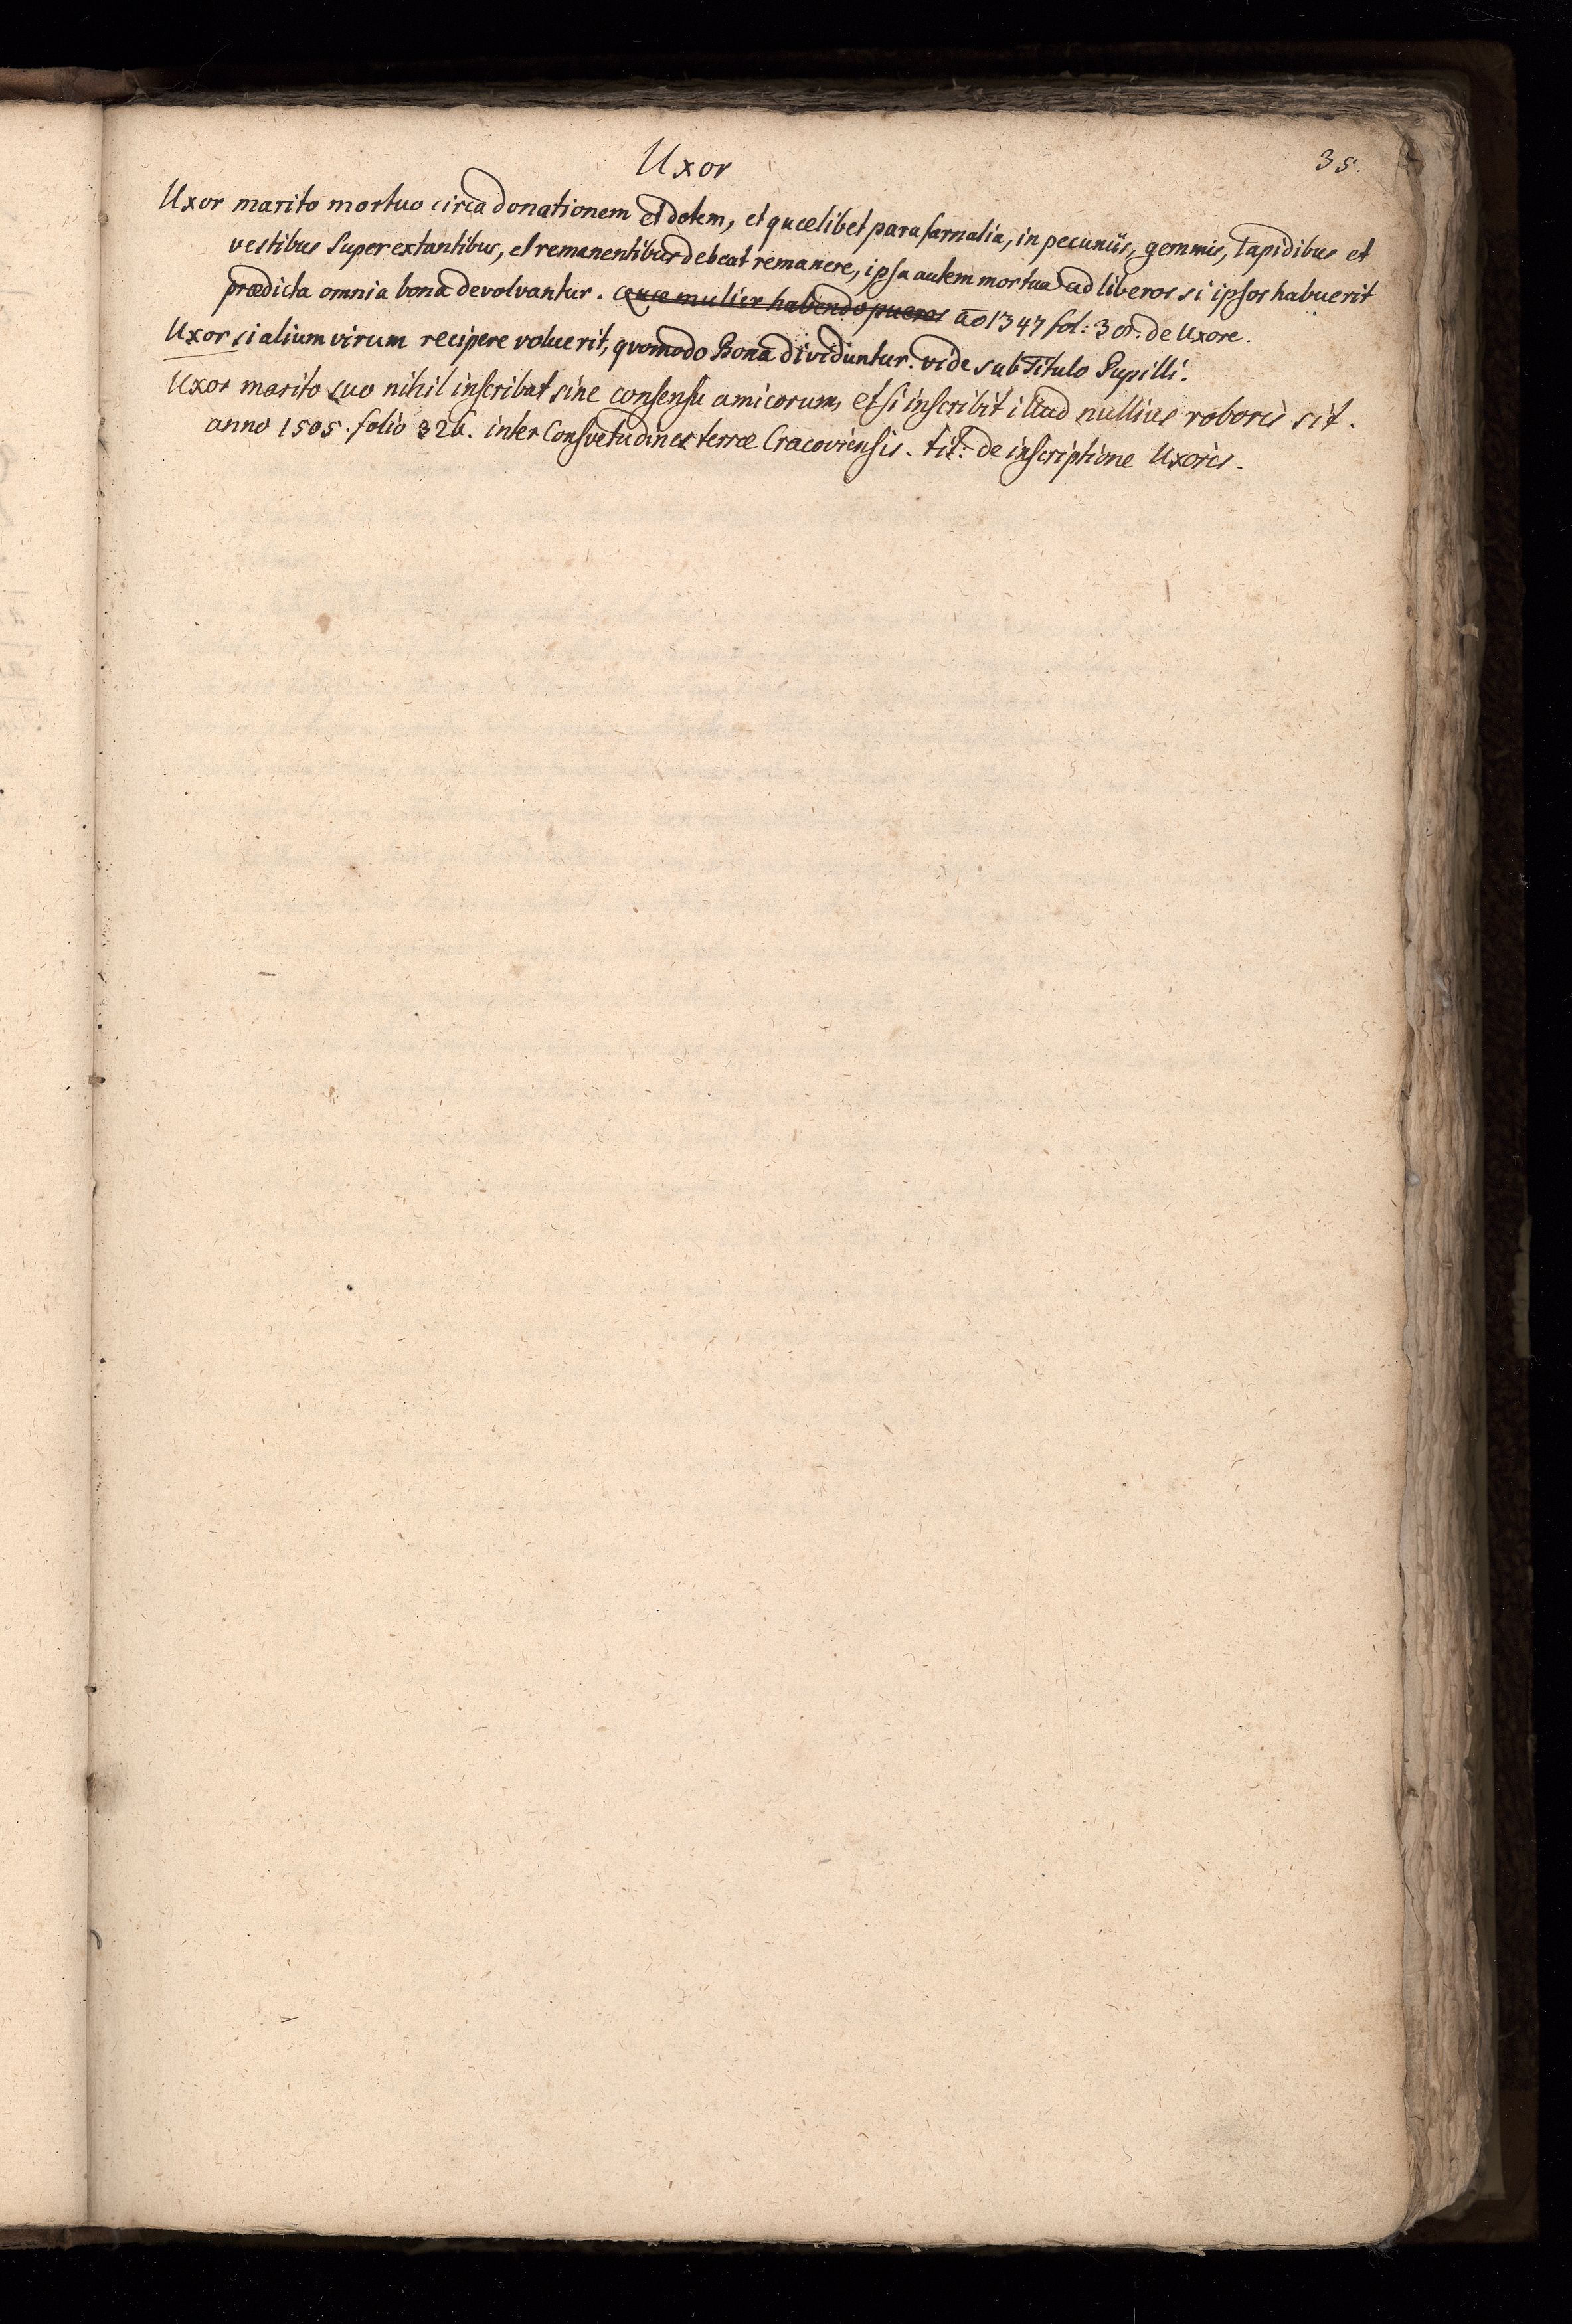 Uxor
35.
Uxor marito mortuo circa donationem et dotem, et quælibet parafarnalia, in pecuniis, gemmis, lapidibus et
vestibus superextantibus, et remanentibus debeat remanere, ipsa autem mortua ad liberos si ipsos habuerit
prædicta omnia bona devolvantur. Quæ mulier habendo pueros ao 1347 fol: 30. de Uxore.
Uxor si alium virum recipere voluerit, qvomodo Bona dividuntur. vide sub Titulo Pupilli.
Uxor marito suo nihil inscribat sine consensu amicorum, et si inscribit illud nullius roboris sit.
anno 1505. folio 326. inter Consvetudines terræ Cracoviensis. tit: de inscriptione Uxoris.